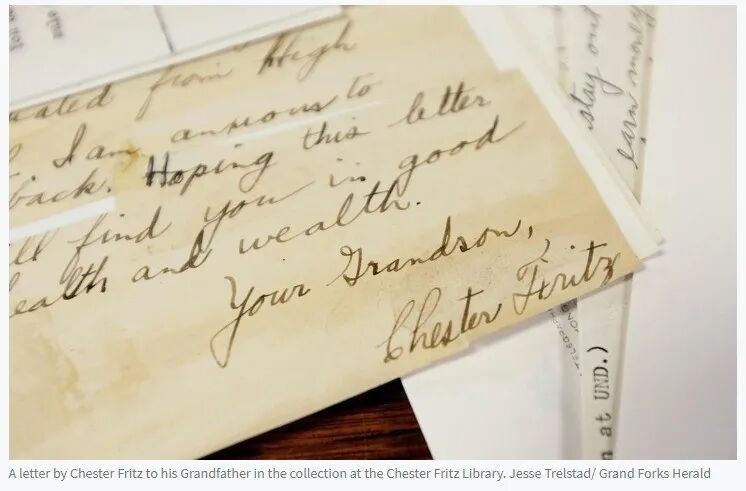 uated from High
I am anxious to
back. Hoping this letter
ll find you in good
ealth and wealth.
Your Grandson,
Chester Fritz
stay out
earn money
TELEGRAPH
n at UND.)
A letter by Chester Fritz to his Grandfather in the collection at the Chester Fritz Library. Jesse Trelstad/ Grand Forks Herald